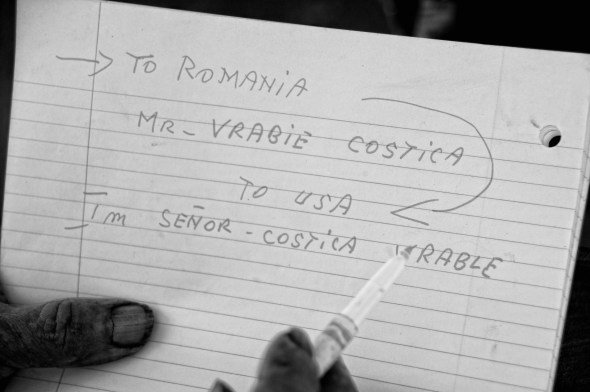 → TO ROMANIA
MR- VRABIE COSTICA
TO USA
I'm SEÑOR - COSTICA VRABLE